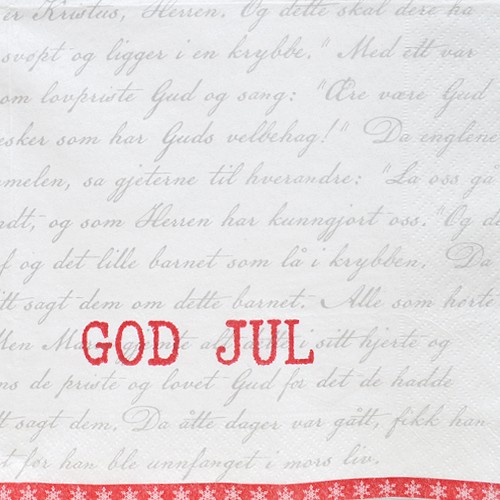 er Kristus, Herren. Og dette skal dere ha
svøpt og ligger i en krybbe." Med ett var
om lovpriste Gud og sang: "Ære være Gud
esker som har Guds velbehag!" Da englene
mmelen, sa gjeterne til hverandre: "La oss gå
ndt, og som Herren har kunngjort oss. "Og de
f og det lille barnet som lå i krybben. Da
itt sagt dem om dette barnet. Alle som hørte
Men Maria gjemte alt dette i sitt hjerte og
GOD JUL
ns de priste og lovet Gud for det de hadde
t sagt dem. Da åtte dager var gått, fikk han
t før han ble unnfanget i mors liv.